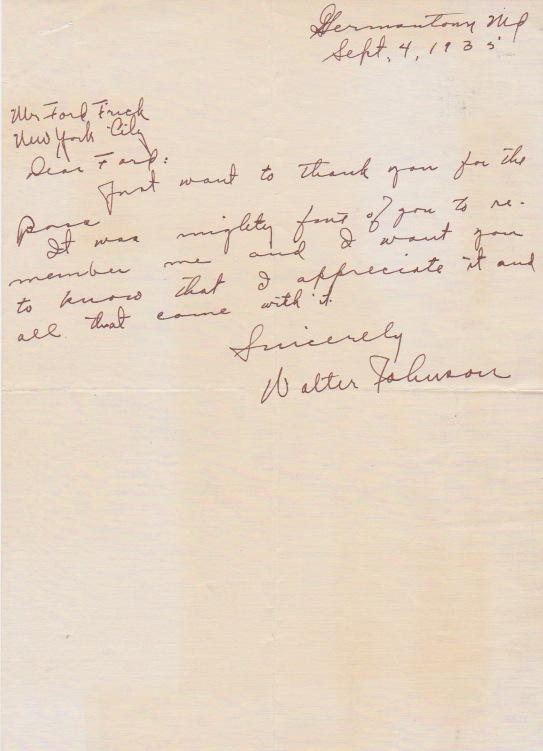 Germantown Md
Sept, 4, 1935
Mr Ford Frick
New York City
Dear Ford:
Just want to thank you for the
pass
It was mighty fine of you to re-
member me and I want you
to know that I appreciate it and
all that come with it.
Sincerely
Walter Johnson